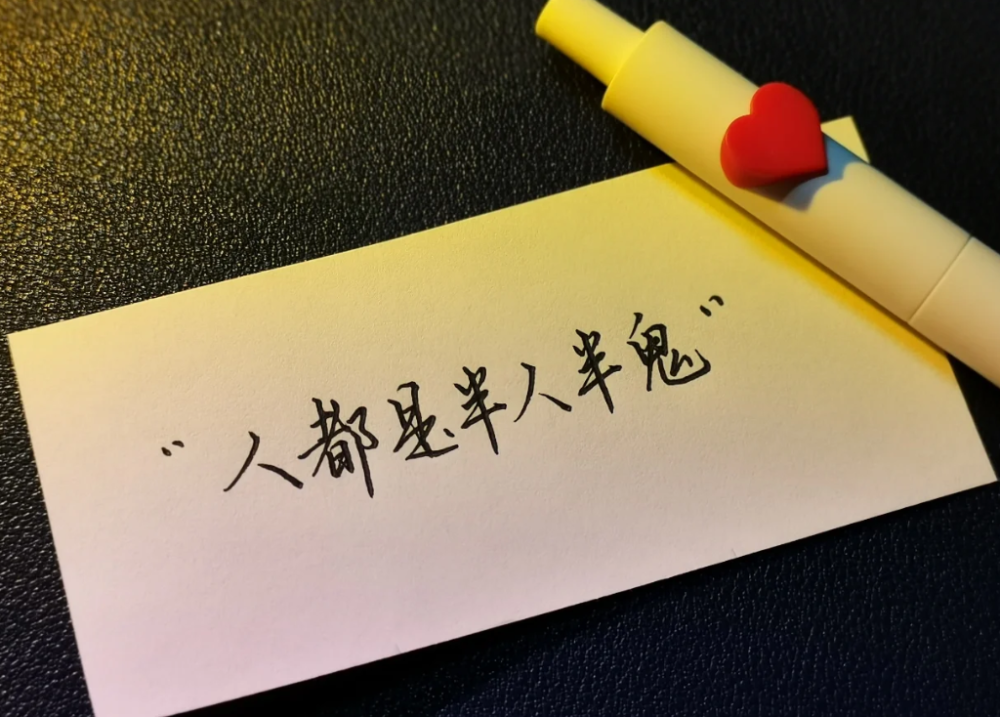 “人都是半人半鬼”